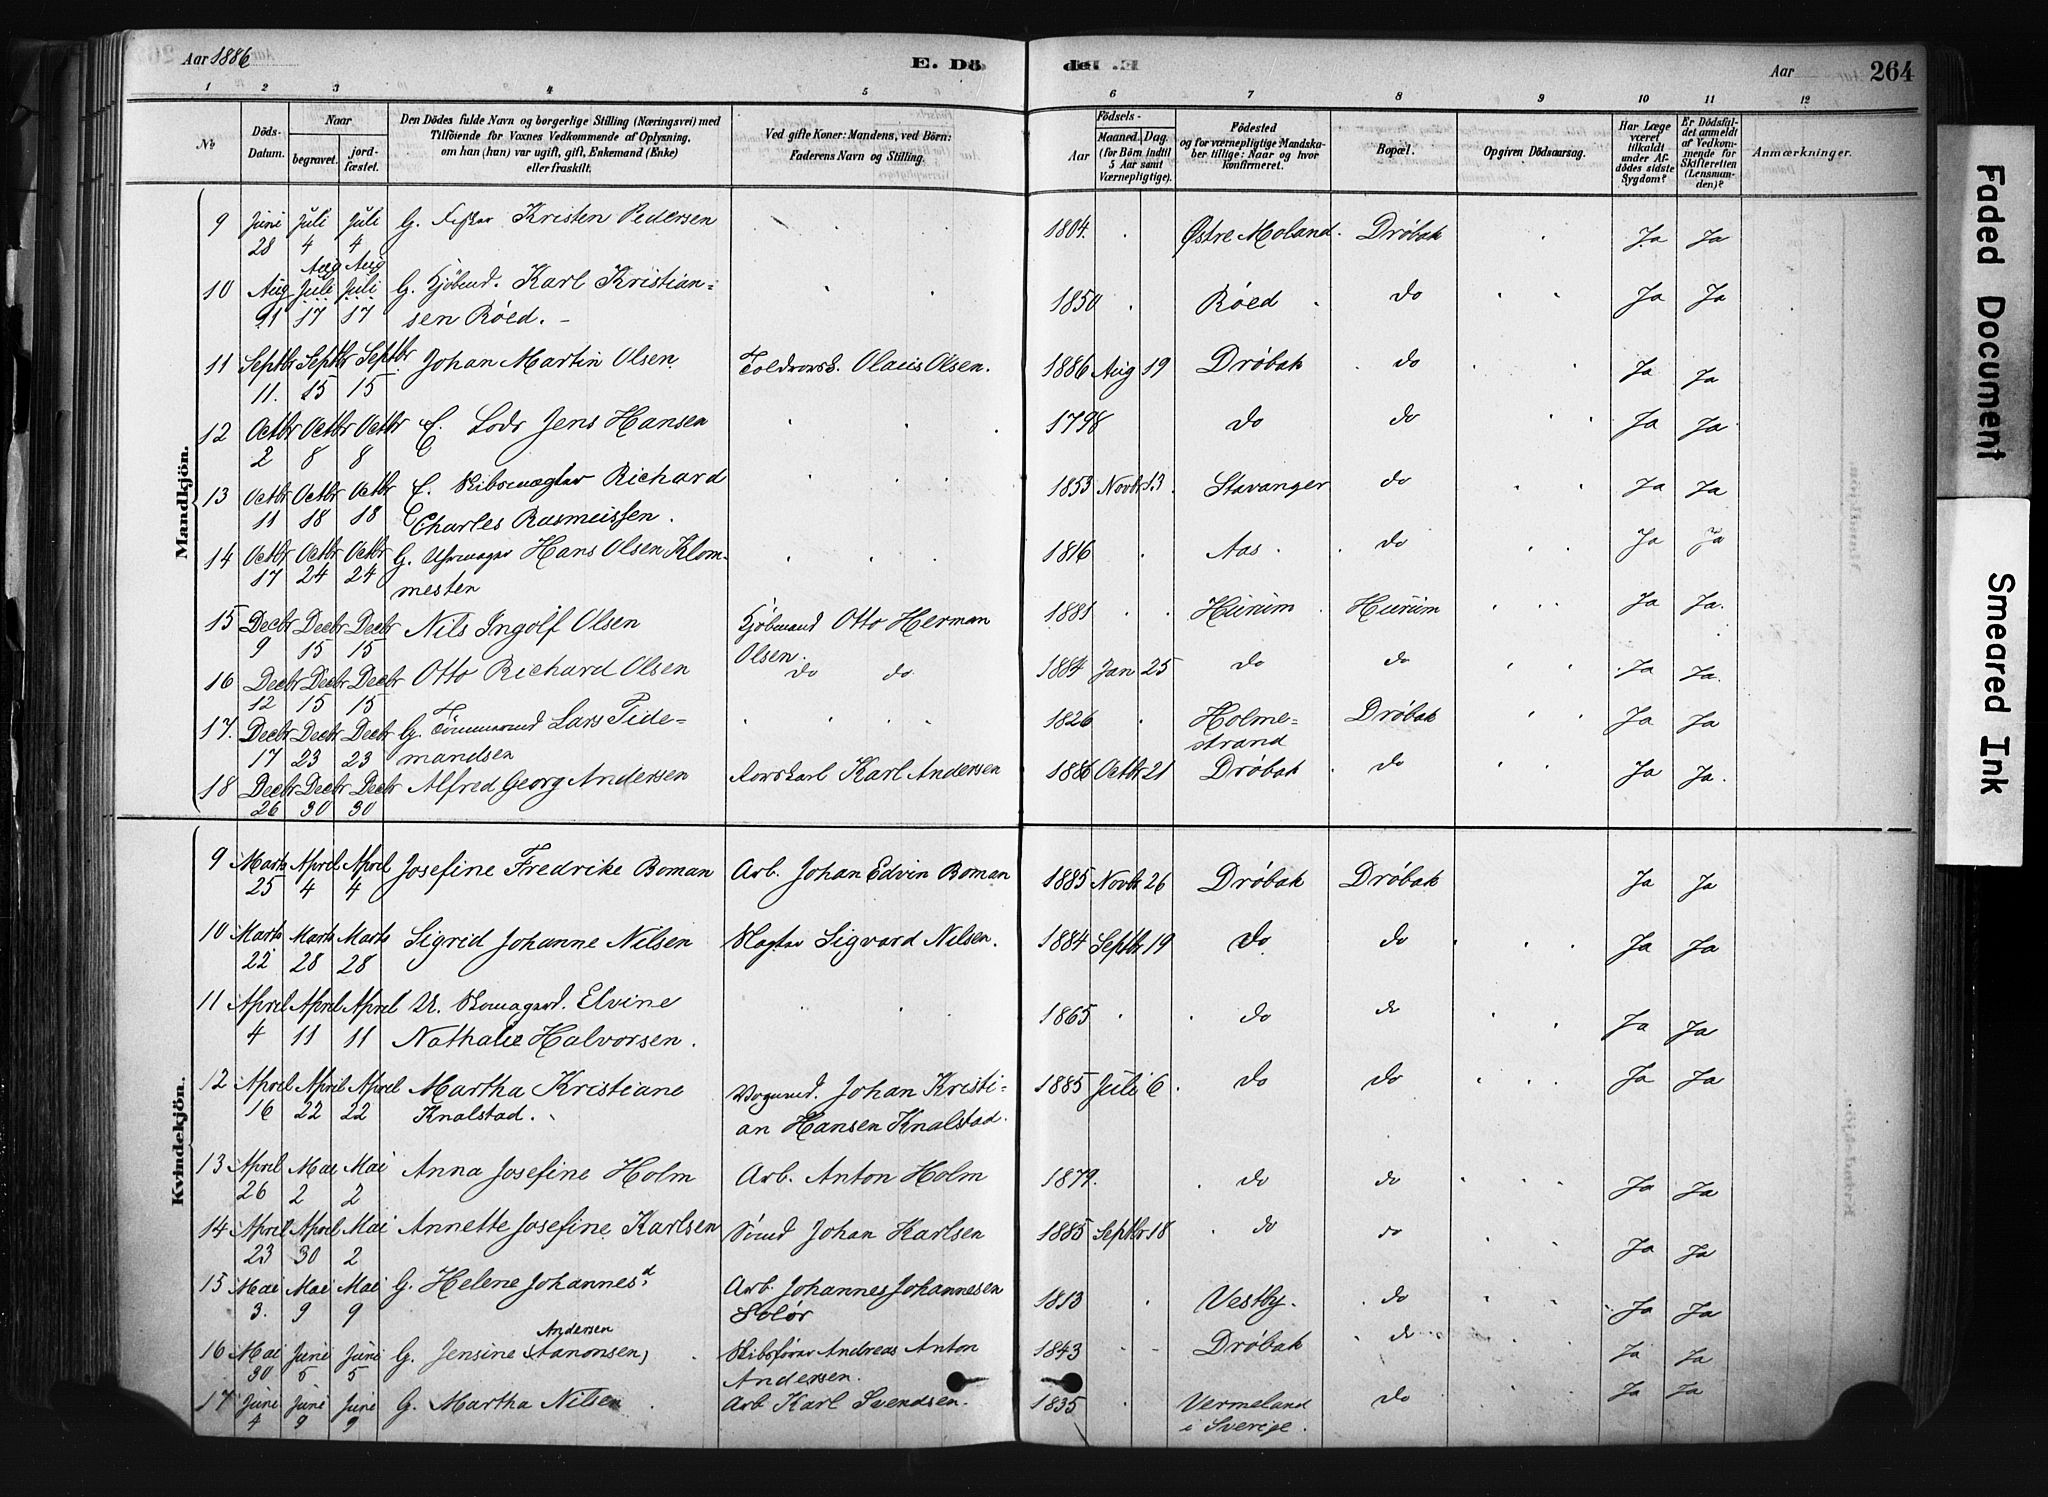 Aar 1886
E. Dö
de. E.
Aar
264
1 2 3 4 5 6 7 8 9 10 11 12
No
Döds-Datum.
Naar
begravet.
jord-fæstet.
Den Dödes fulde Navn og borgerlige Stilling (Næringsvei) med
Tilföiende for Voxnes Vedkommende af Oplysning,
om han (hun) var ugift, gift, Enkemand (Enke)
eller fraskilt.
Ved gifte Koner: Mandens, ved Börn:
Faderens Navn og Stilling.
Födsels-
Aar
Maaned. Dag.
(for Börn indtil
5 Aar samt
Værnepligtige).
Födested
og for værnepligtige Mandska-
ber tillige: Naar og hvor
konfirmeret.
Bopæl.
Opgiven Dödsaarsag.
Har Læge
været
tilkaldt
under Af-
dödes sidste
Sygdom?
Er Dödsfal-
det anmeldt
af Vedkom-
mende for
Skifteretten
(Lensman-
den)?
Anmærkninger.
Mandkjön.
9 Juni 28 Juli 4 Juli 4 G. Kristen Pedersen 1804. Østre Moland. Drøbak Ja Ja
Aug Aug
10 Aug 21 Juli 17 Juli 17 G. Kjøbmd. Karl Kristian-
sen Røed. 1850 Røed do Ja Ja
11 Septbr 11. Septbr 15 Septbr 15 Johan Martin Olsen. Olaus Olsen. 1886 Aug 19 Drøbak do Ja Ja
12 Octbr 2 Octbr 8 Octbr 8 E. Lods Jens Hansen 1798 do do Ja Ja
13 Octbr 11 Octbr 18 Octbr 18 E. Skibsmægler Richard
Charles Rasmussen. 1853 Novbr 13. Stavanger do Ja Ja
14 Octbr 17 Octbr 24 Octbr 24 G. Hans Olsen Klom-
mesten 1816 Aas. do Ja Ja
15 Decbr 9 Decbr 15 Decbr 15 Nils Ingolf Olsen Kjøbmand Otto Herman
Olsen. 1881 Hurum Hurum Ja Ja.
16 Decbr 12 Decbr 15 Decbr 15 Otto Richard Olsen do do 1884 Jan 25 do do Ja Ja.
17. Decbr 17 Decbr 23 Decbr 23 G. Tømmermand Lars Tide-
mandsen 1826 Holme-
strand Drøbak Ja Ja
18 Decbr 26 Decbr 30 Decbr 30 Alfred Georg Andersen Karl Andersen 1886 Octbr 21 Drøbak do Ja Ja.
Kvindekjön.
9 Marts 25 April 4 April 4 Josefine Fredrike Boman Arb. Johan Edvin Boman 1885 Novbr 26 Drøbak Drøbak Ja Ja
10 Marts 22 Marts 28 Marts 28 Sigrid Johanne Nilsen Slagter Sigvard Nilsen. 1884 Septbr 19 do do Ja Ja
11 April 4 April 11 April 11 U. Elvine
Nathalie Halvorsen. 1865 do do Ja Ja
12 April 16 April 22 April 22 Martha Kristiane
Knalstad. Vognmd. Johan Kristi-
an Hansen Knalstad. 1885 Juli 6 do do Ja Ja
13 April 26 Mai 2 Mai 2 Anna Josefine Holm Arb. Anton Holm 1879. do do Ja Ja
14 April 23 April 30 Mai 2 Annette Josefine Karlsen Sømd Johan Karlsen 1885 Septbr 18 do do Ja Ja
15 Mai 3. Mai 9 Mai 9 G. Helene Johannesd. Arb. Johannes Johannesen
Solør 1813 Vestby. do Ja Ja
Andersen
16 Mai 30 Juni 5 Juni 5 G. Jensine (Aanonsen) Skibsfører Andreas Anton
Andersen. 1843 Drøbak do Ja Ja
17 Juni 4 Juni 9 Juni 9 G. Martha Nilsen Arb Karl Svendsen. 1835 Vermeland
i Sverige. do Ja Ja
Faded Document
Smeared Ink